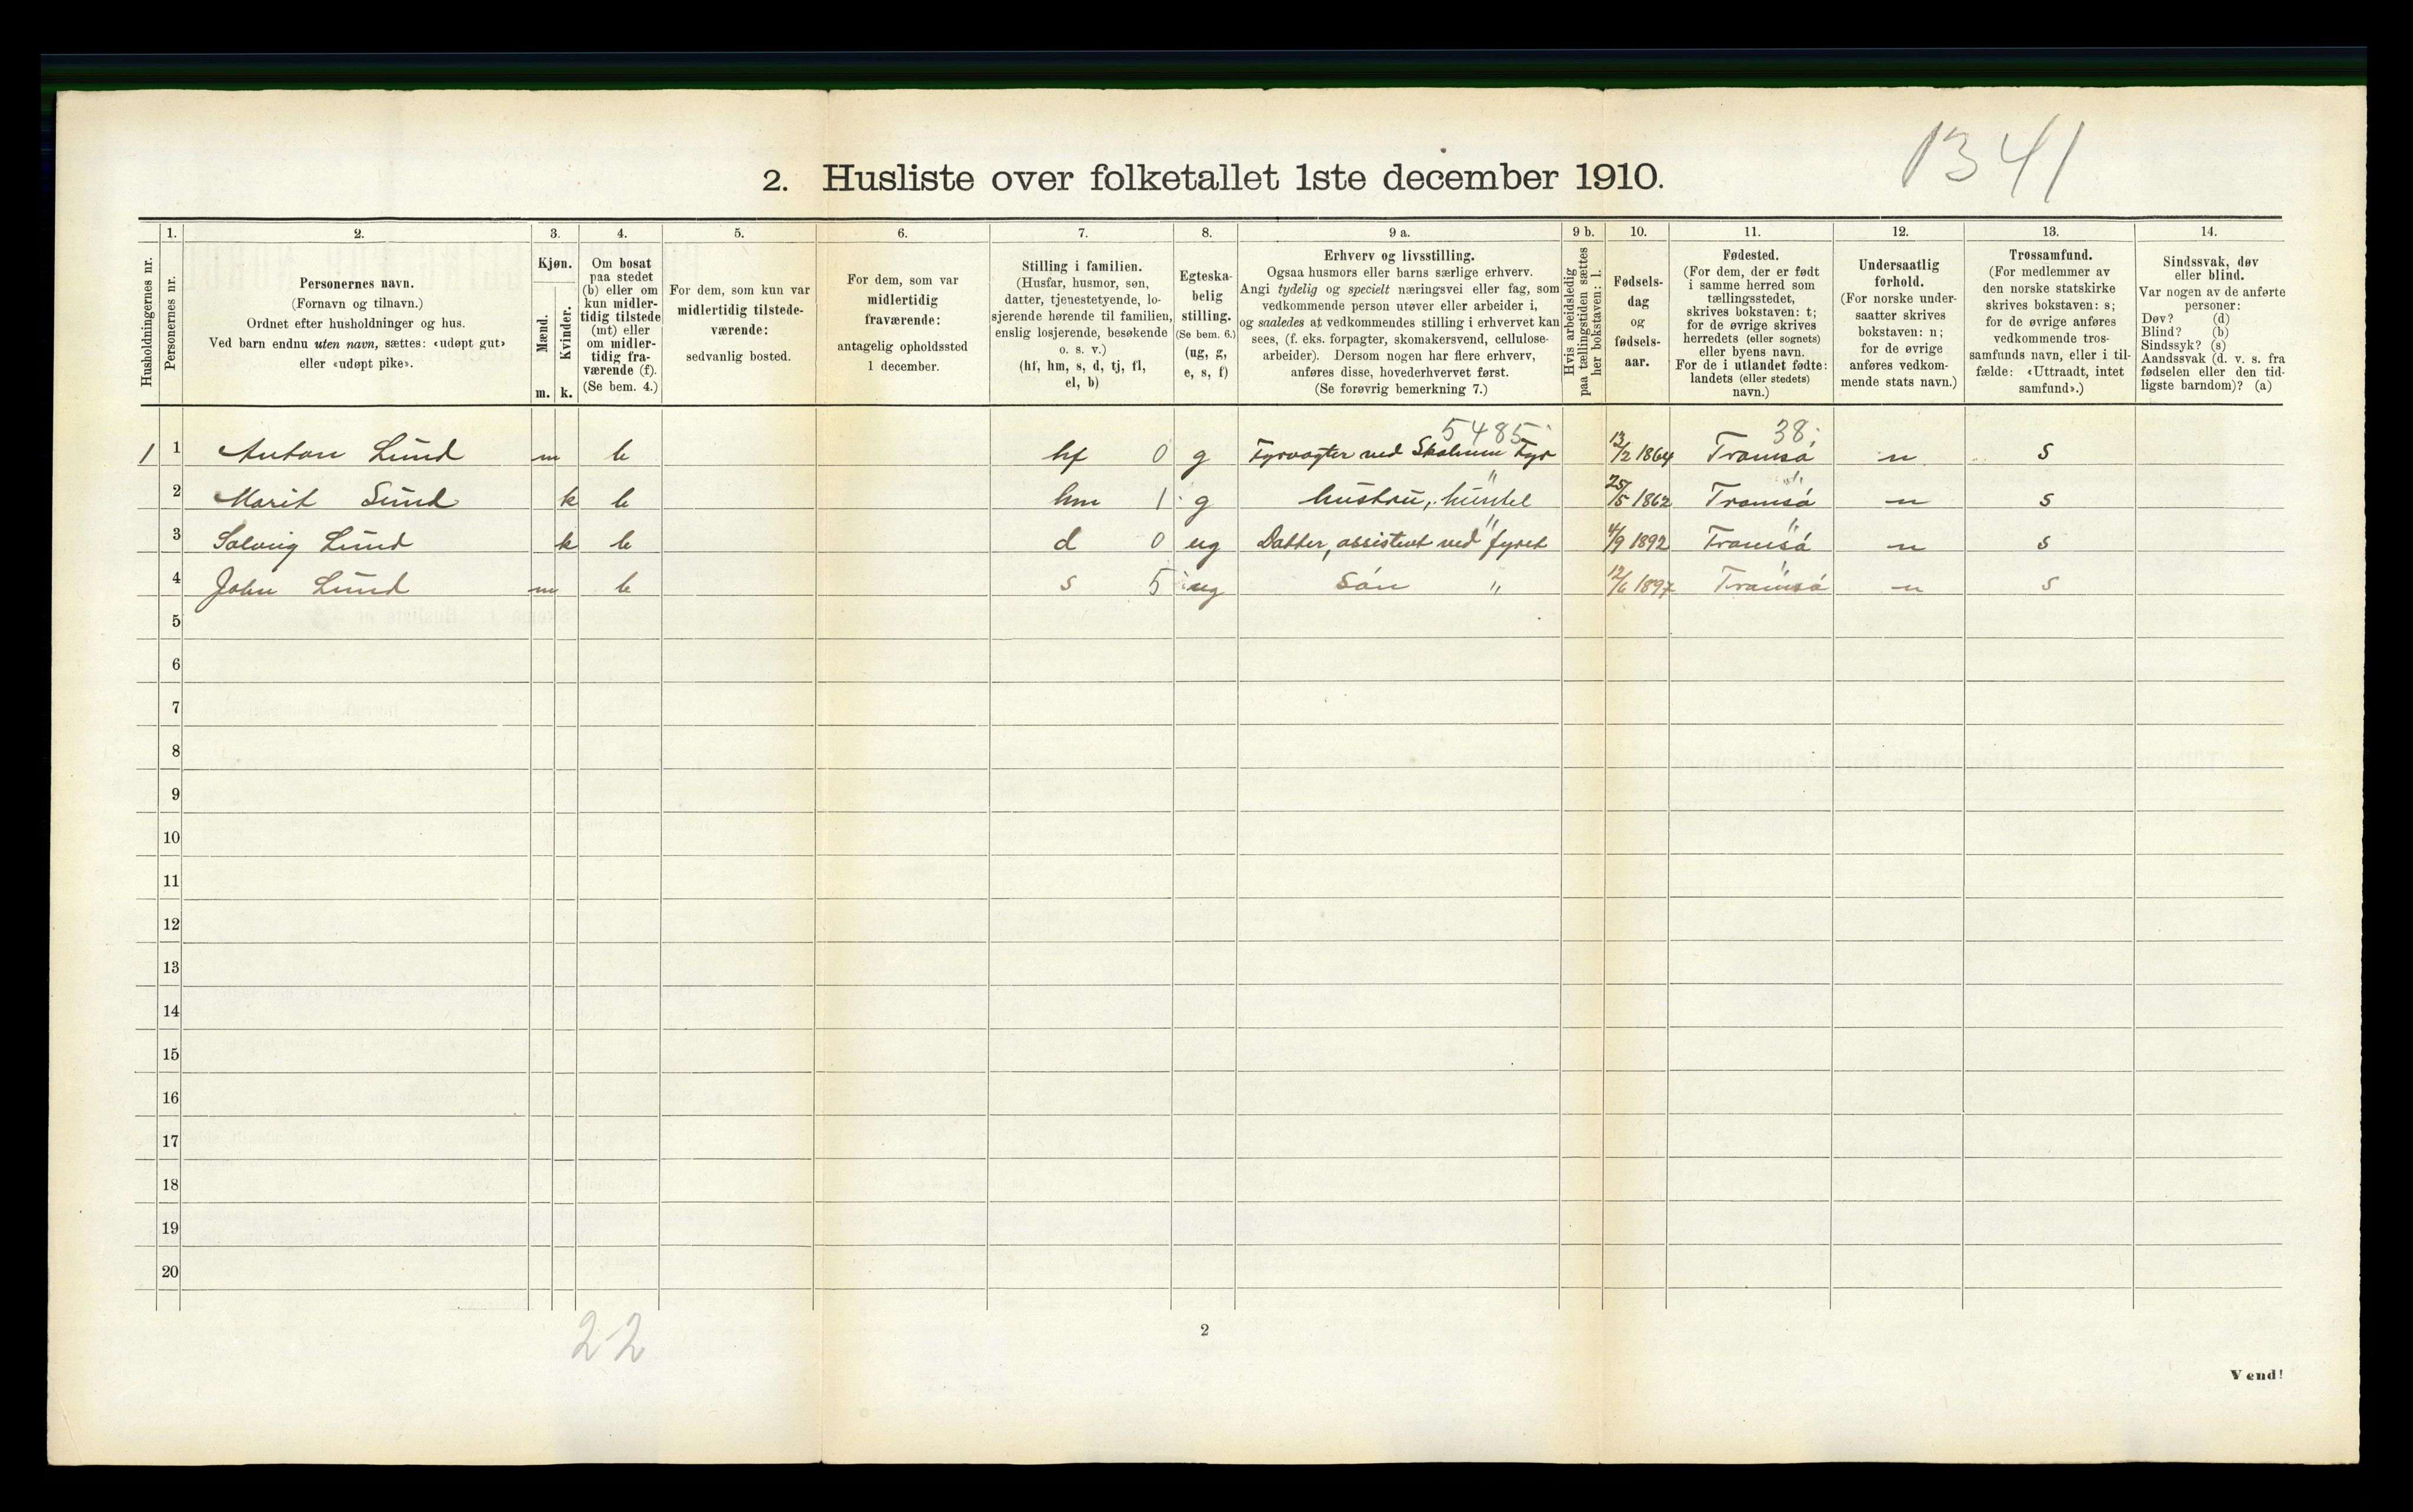 1341
2. Husliste over folketallet 1ste december 1910.
Husholdningernes nr.
1.
Personernes nr.
2.
Personernes navn.
(Fornavn og tilnavn.)
Ordnet efter husholdninger og hus.
Ved barn endnu uten navn, sættes: «udøpt gut»
eller «udøpt pike».
3.
Kjøn.
Mænd.
m.
Kvinder.
k.
4.
Om bosat
paa stedet
(b) eller om
kun midler-
tidig tilstede
(mt) eller
om midler-
tidig fra-
værende (f).
(Se bem. 4.)
5.
For dem, som kun var
midlertidig tilstede-
værende:
sedvanlig bosted.
6.
For dem, som var
midlertidig
fraværende:
antagelig opholdssted
1 december.
7.
Stilling i familien.
(Husfar, husmor, søn,
datter, tjenestetyende, lo-
sjerende hørende til familien,
enslig losjerende, besøkende
o. s. v.)
(hf, hm, s, d, tj, fl,
el, b)
8.
Egteska-
belig
stilling.
(Se bem. 6.)
(ug, g,
e, s, f)
9 a.
Erhverv og livsstilling.
Ogsaa husmors eller barns særlige erhverv.
Angi tydelig og specielt næringsvei eller fag, som
vedkommende person utøver eller arbeider i,
og saaledes at vedkommendes stilling i erhvervet kan
sees, (f. eks. forpagter, skomakersvend, cellulose-
arbeider). Dersom nogen har flere erhverv,
anføres disse, hovederhvervet først.
(Se forøvrig bemerkning 7.)
9 b.
Hvis arbeidsledig
paa tællingstiden sættes
her bokstaven: l.
10.
Fødsels-
dag
og
fødsels-
aar.
11.
Fødested.
(For dem, der er født
i samme herred som
tællingsstedet,
skrives bokstaven: t;
for de øvrige skrives
herredets (eller sognets)
eller byens navn.
For de i utlandet fødte:
landets (eller stedets)
navn.)
12.
Undersaatlig
forhold.
(For norske under-
saatter skrives
bokstaven: n;
for de øvrige
anføres vedkom-
mende stats navn.)
13.
Trossamfund.
(For medlemmer av
den norske statskirke
skrives bokstaven: s;
for de øvrige anføres
vedkommende tros-
samfunds navn, eller i til-
fælde: «Uttraadt, intet
samfund».)
14.
Sindssvak, døv
eller blind.
Var nogen av de anførte
personer:
Døv? (d)
Blind? (b)
Sindssyk? (s)
Aandssvak (d. v. s. fra
fødselen eller den tid-
ligste barndom)? (a)
5485 38;
1 1 Anton Lund m b hf 0 g Fyrvogter ved Fyr 13/2 1864 Tromsø n s
2 Marit Lund k b hm 1 g hustru, " 25/5 1862 Tromsø n s
3 Solveig Lund k b d 0 ug Datter, assistent ved fyret 4/9 1892 Tromsø n s
4 John Lund m b s 5 ug Søn " 12/6 1897 Tromsø n s
5
6
7
8
9
10
11
12
13
14
15
16
17
18
19
20
2-2
2
Vend!